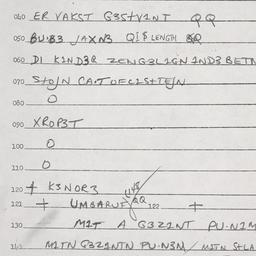 040 ER VAKST G3S+V1NT QQ
050 BU·B3 JAXN3 QI$ LENGTH QQ
060 DI K1ND3R ZENG3L1GN 1ND3 BETN
070 S+O/N CA·T OFCL1S+TE/N
080 O
090 XROP3T
100 O
110 O
120 + K3NOR3
121 + UMBARUF 122 +
130 M1T A G3Z1NT PU·N1M
M1TN Q3Z1NTN PU·N3M / M1TN S+LA